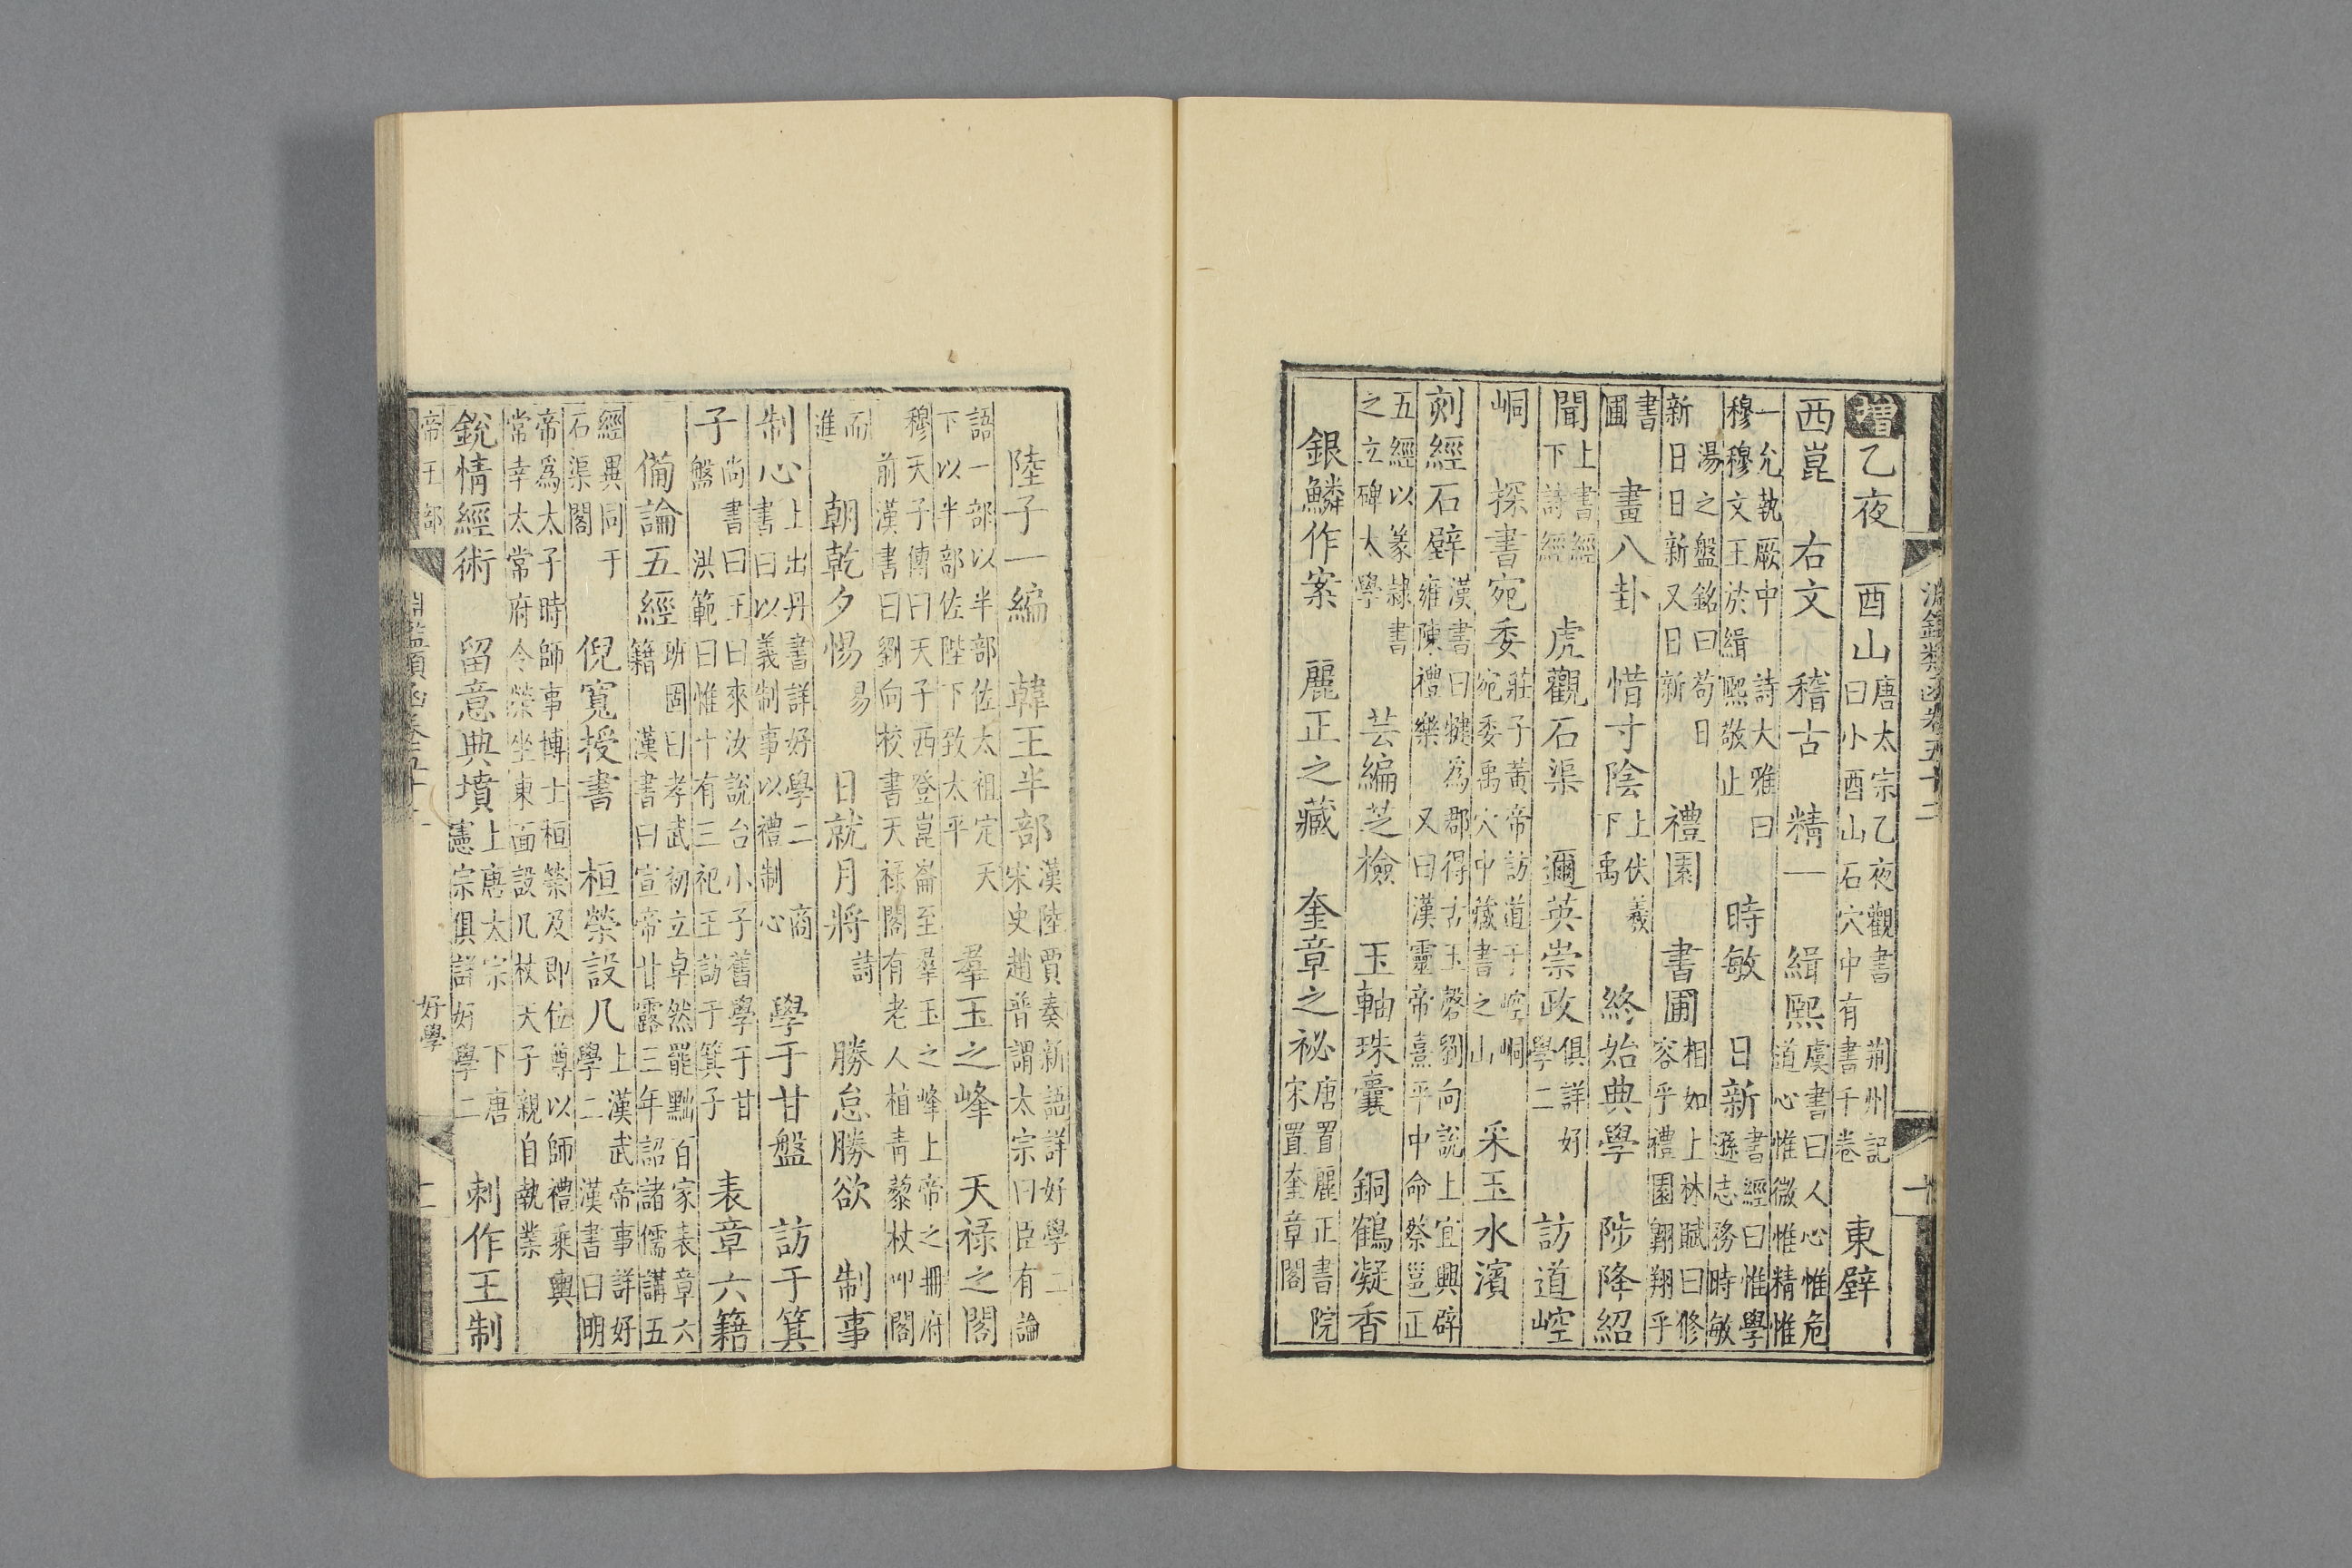 淵鑑類函卷五十二 十
增 乙夜 酉山 唐太宗乙夜觀書 荊州記曰小酉山石穴中有書千卷 東壁
西崑 右文 稽古 精一 緝熙 虞書曰人心惟危道心惟微惟精惟
一允執厥中 詩大雅曰穆穆文王於緝熙敬止 時敏 日新 書經曰惟學遜志務時敏
湯之盤銘曰苟日新日日新又日新 禮園 書圃 相如上林賦曰修容乎禮園翺翔乎
書圃 畫八卦 惜寸陰 上伏羲下禹 終始典學 陟降紹
聞 上書經下詩經 虎觀石渠 邇英崇政 俱詳好學二 訪道崆
峒 探書宛委 莊子黃帝訪道于崆峒宛委禹穴中藏書之山 采玉水濱
刻經石壁 漢書曰犍爲郡得古玉磬劉向說上宜興辟雍陳禮樂 又曰漢靈帝熹平中命蔡邕正
五經以篆隸書之立碑太學 芸編芝檢 玉軸珠囊 銅鶴凝香
銀鱗作案 麗正之藏 奎章之祕 唐置麗正書院宋置奎章閣
陸子一編 韓王半部 漢陸賈奏新語詳好學二宋史趙普謂太宗曰臣有論
語一部以半部佐太祖定天下以半部佐陛下致太平 羣玉之峰 天祿之閣
穆天子傳曰天子西登崑崙至羣玉之峰上帝之冊府前漢書曰劉向校書天祿閣有老人植青藜杖叩閣
而進 朝乾夕惕 易 日就月將 詩 勝怠勝欲 制事
制心 上出丹書詳好學二 商書曰以義制事以禮制心 學于甘盤 訪于箕
子 尚書曰王曰來汝說台小子舊學于甘盤 洪範曰惟十有三祀王訪于箕子 表章六籍
備論五經 班固曰孝武初立卓然罷黜百家表章六籍 漢書曰宣帝甘露三年詔諸儒講五
經異同于石渠閣 倪寬授書 桓榮設几 上漢武帝事詳好學二 漢書曰明
帝爲太子時師事博士桓榮及即位尊以師禮乘輿常幸太常府令榮坐東面設几杖天子親自執業
銳情經術 留意典墳 上唐太宗 下唐憲宗俱詳好學二 刺作王制
帝王部 好學